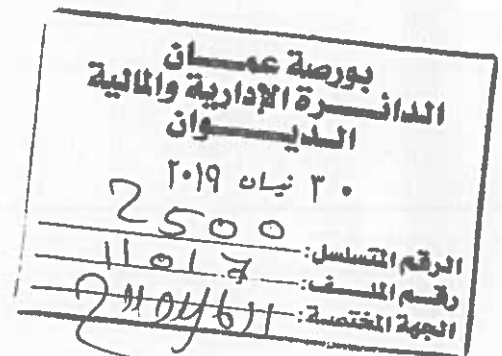 بورصة عمـــان
الدائــــرة الإدارية والمالية
الـديـــــوان
٣٠ نيسان ٢٠١٩
الرقم المتسلسل: 2500
رقـم الملـــف: 11017
الجهة المختصة: